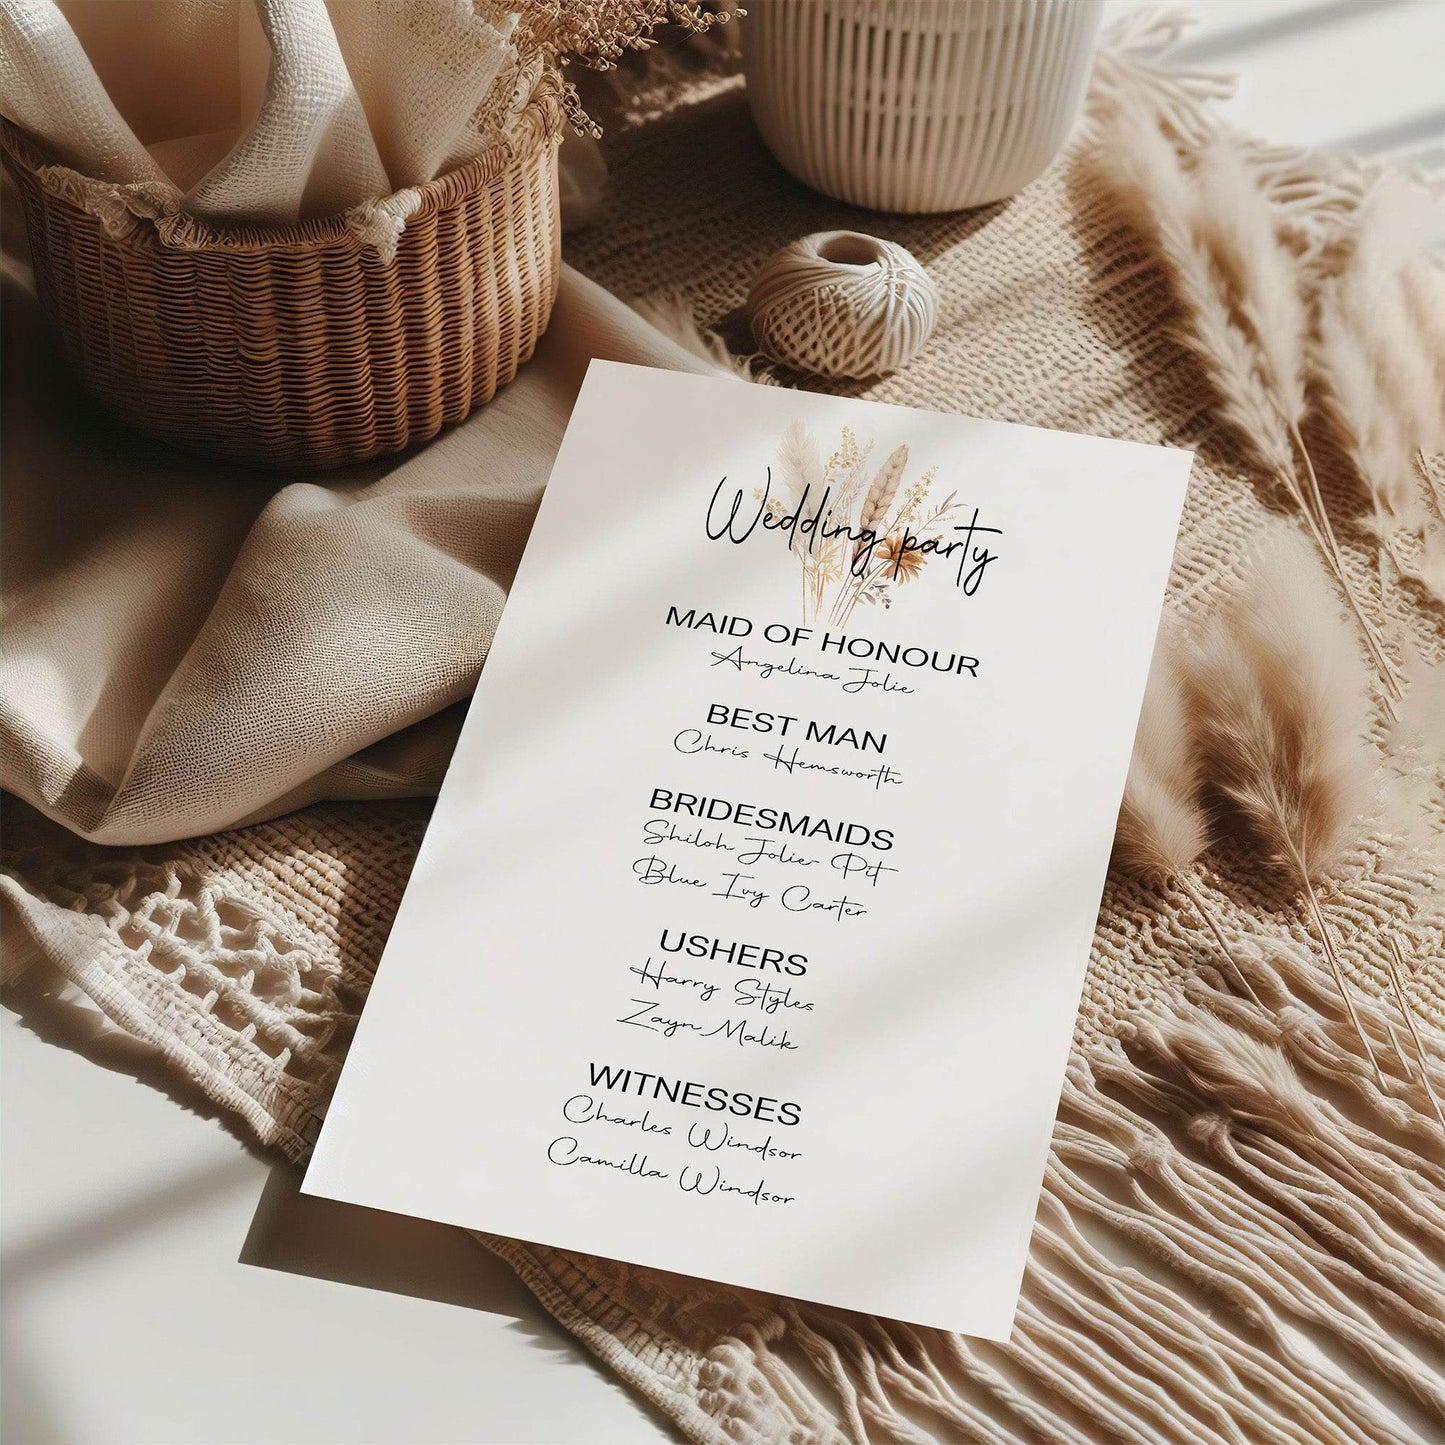 Wedding party
MAID OF HONOUR
Angelina Jolie
BEST MAN
Chris Hemsworth
BRIDESMAIDS
Shiloh Jolie- Pit
Blue Ivy Carter
USHERS
Harry Styles
Zayn Malik
WITNESSES
Charles Windsor
Camilla Windsor